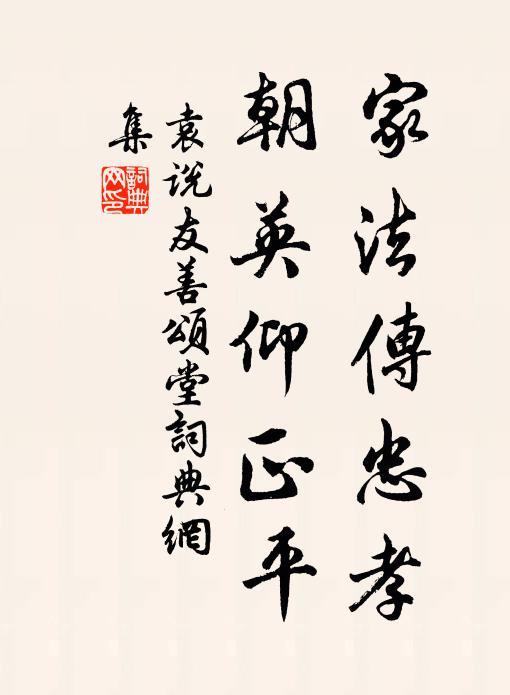 家法傳忠孝
朝英仰正平
袁说友善頌堂詞典網
集
詞典
网印